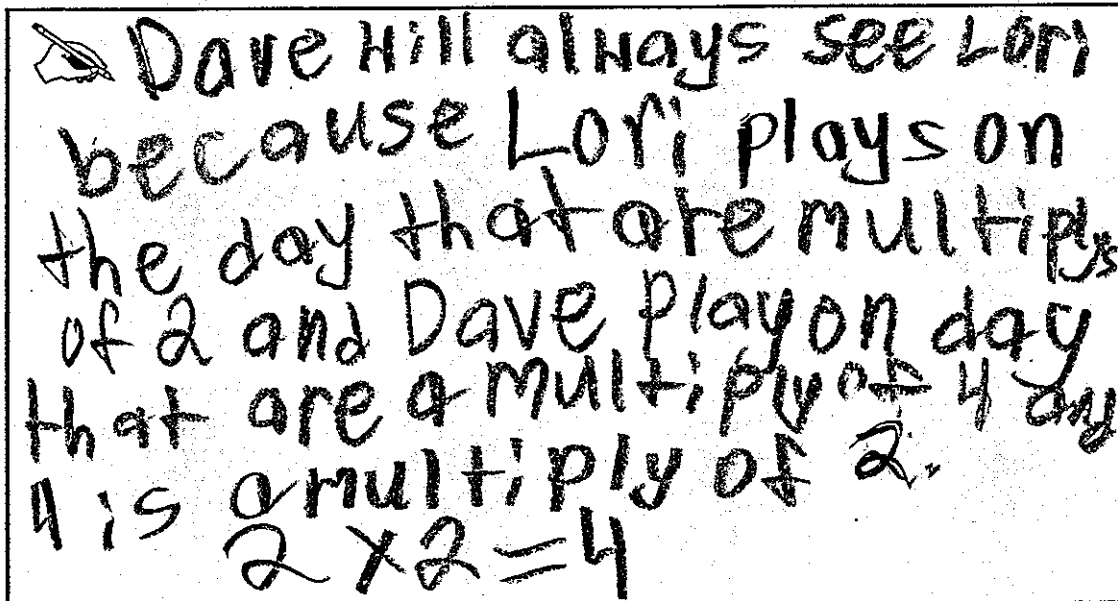 Dave will always see Lori
because Lori plays on
the day that are multiplys
of 2 and Dave play on day
that are a multiply of 4 and
4 is a multiply of 2.
2 x 2 = 4